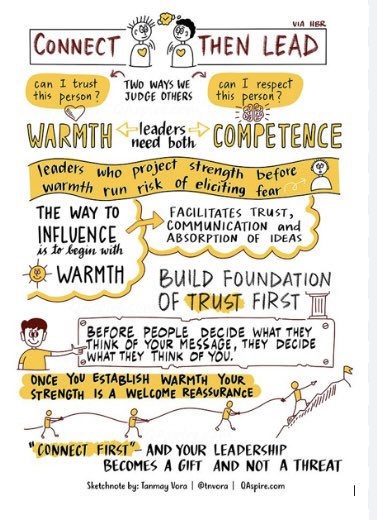 VIA HBR
CONNECT THEN LEAD
can I trust
this person?
TWO WAYS WE
JUDGE OTHERS
can I respect
this person?
WARMTH
leaders
need both
COMPETENCE
leaders who project strength before
warmth run risk of eliciting fear
THE WAY TO
INFLUENCE
is to begin with
WARMTH
FACILITATES TRUST,
COMMUNICATION and
ABSORPTION OF IDEAS
BUILD FOUNDATION
OF TRUST FIRST
BEFORE PEOPLE DECIDE WHAT THEY
THINK OF YOUR MESSAGE, THEY DECIDE
WHAT THEY THINK OF YOU.
ONCE YOU ESTABLISH WARMTH YOUR
STRENGTH IS A WELCOME REASSURANCE
"CONNECT FIRST" – AND YOUR LEADERSHIP
BECOMES A GIFT AND NOT A THREAT
Sketchnote by: Tanmay Vora | @tnvora | QAspire.com